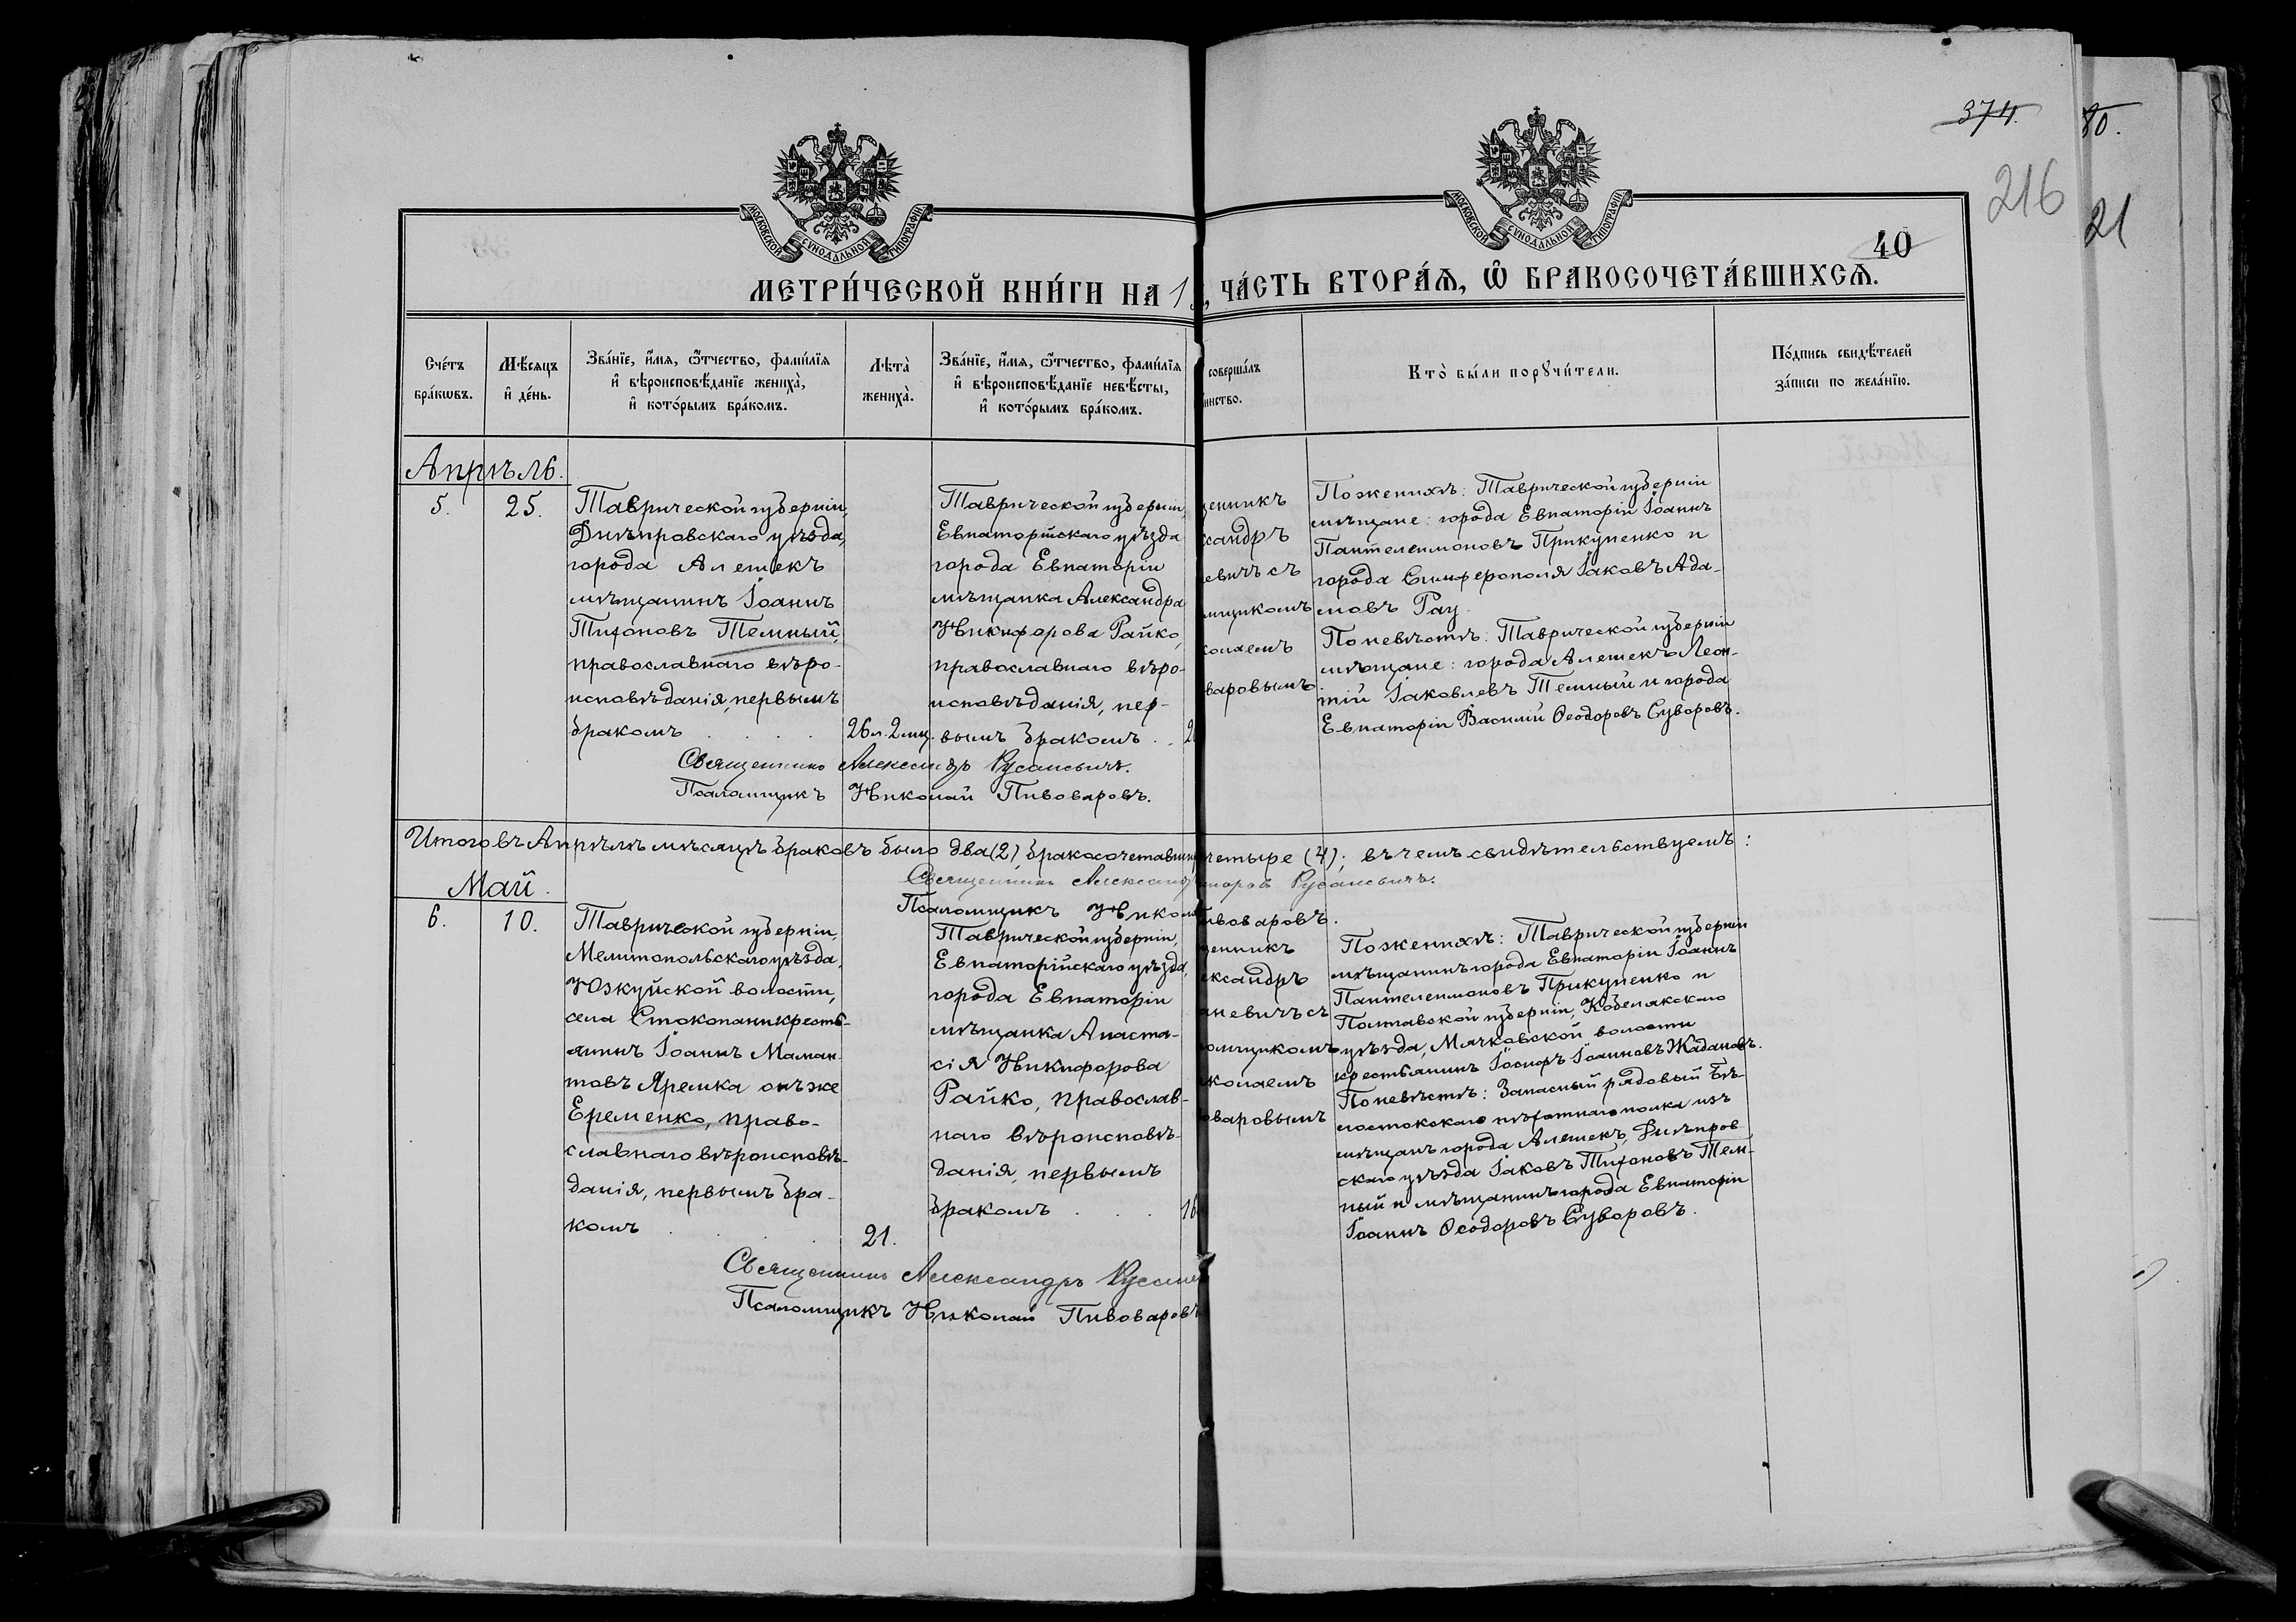 374.
80.
216
21
40
МОСКОВСКОЙ СѴНОДАЛЬНОЙ ТИПОГРАФІИ
МОСКОВСКОЙ СѴНОДАЛЬНОЙ ТИПОГРАФІИ
МЕТРИ́ЧЕСКОЙ КНИ́ГИ НА 1
ЧА́СТЬ ВТОРА́Ѧ, Ѽ БРАКОСОЧЕТА́ВШИХСѦ.
Сче́тъ
бра́кѡвъ.
Мѣ́сяцъ
и҆ де́нь.
Зва́нїе, и҆́мя, ѻ҆́тчество, фами́лїя
и҆ вѣроисповѣ́данїе жениха̀,
и҆ кото́рымъ бра́комъ.
Лѣта̀
жениха̀.
Зва́нїе, и҆́мя, ѻ҆́тчество, фами́лїя
и҆ вѣроисповѣ́данїе невѣ́сты,
и҆ кото́рымъ бра́комъ.
соверша́лъ
инство.
Кто̀ бы́ли порꙋчи́тели.
По́дпись свидѣ́телей
за́писи по жела́нїю.
Апрѣль.
5.
25.
Таврической губерніи,
Днѣпровскаго уѣзда,
города Алешекъ
мѣщанинъ Іоаннъ
Тихоновъ Темный,
православнаго вѣро-
исповѣданія, первымъ
бракомъ
26 л. 2 мц.
Таврической губерніи,
Евпаторійскаго уѣзда
города Евпаторіи
мѣщанка Александра
Никифорова Райко,
православнаго вѣро-
исповѣданія, пер-
вымъ бракомъ . . 2
щенникъ
ксандръ
евичъ съ
мщикомъ
колаемъ
варовымъ
По женихѣ: Таврической губерніи
мѣщане: города Евпаторіи Іоаннъ
Пантелеимоновъ Прикупенко и
города Симферополя Іаковъ Ада-
мовъ Рау.
По невѣстѣ: Таврической губерніи
мѣщане: города Алешекъ Леон-
тій Іаковлевъ Темный и города
Евпаторіи Василій Ѳеодоровъ Суворовъ.
Священникъ Александръ Русаневичъ.
Псаломщикъ Николай Пивоваровъ.
Итого въ Апрѣлѣ мѣсяцѣ браковъ было два (2), бракосочетавши четыре (4); въ чемъ свидѣтельствуемъ:
Священникъ Александръ Русаневичъ.
Псаломщикъ Никола ивоваровъ.
Май.
6.
10.
Таврической губерніи,
Мелитопольскаго уѣзда,
Юзкуйской волости,
села Стокопани кресть-
янинъ Іоаннъ Маман-
товъ Яремка онъ же
Еременко, право-
славнаго вѣроисповѣ-
данія, первымъ бра-
комъ
21.
Таврической губерніи,
Евпаторійскаго уѣзда,
города Евпаторіи
мѣщанка Анаста-
сія Никифорова
Райко, православ-
наго вѣроисповѣ-
данія, первымъ
бракомъ . . . 16
щенникъ
ександръ
аневичъ съ
омщикомъ
иколаемъ
оваровымъ
По женихѣ: Таврической губерніи
мѣщанинъ города Евпаторіи Іоаннъ
Пантелеимоновъ Прикупенко и
Полтавской губерніи, Кобелякскаго
уѣзда, Мячковской волости
крестьянинъ Іосифъ Іоанновъ Жадановъ.
По невѣстѣ: Запасный рядовый Бѣ-
лостокскаго пѣхотнаго полка изъ
мѣщанъ города Алешекъ, Днѣпров
скаго уѣзда Іаковъ Тихоновъ Тем-
ный и мѣщанинъ города Евпаторіи
Іоаннъ Ѳеодоровъ Суворовъ.
Священникъ Александръ Русане
Псаломщикъ Николай Пивоваровъ